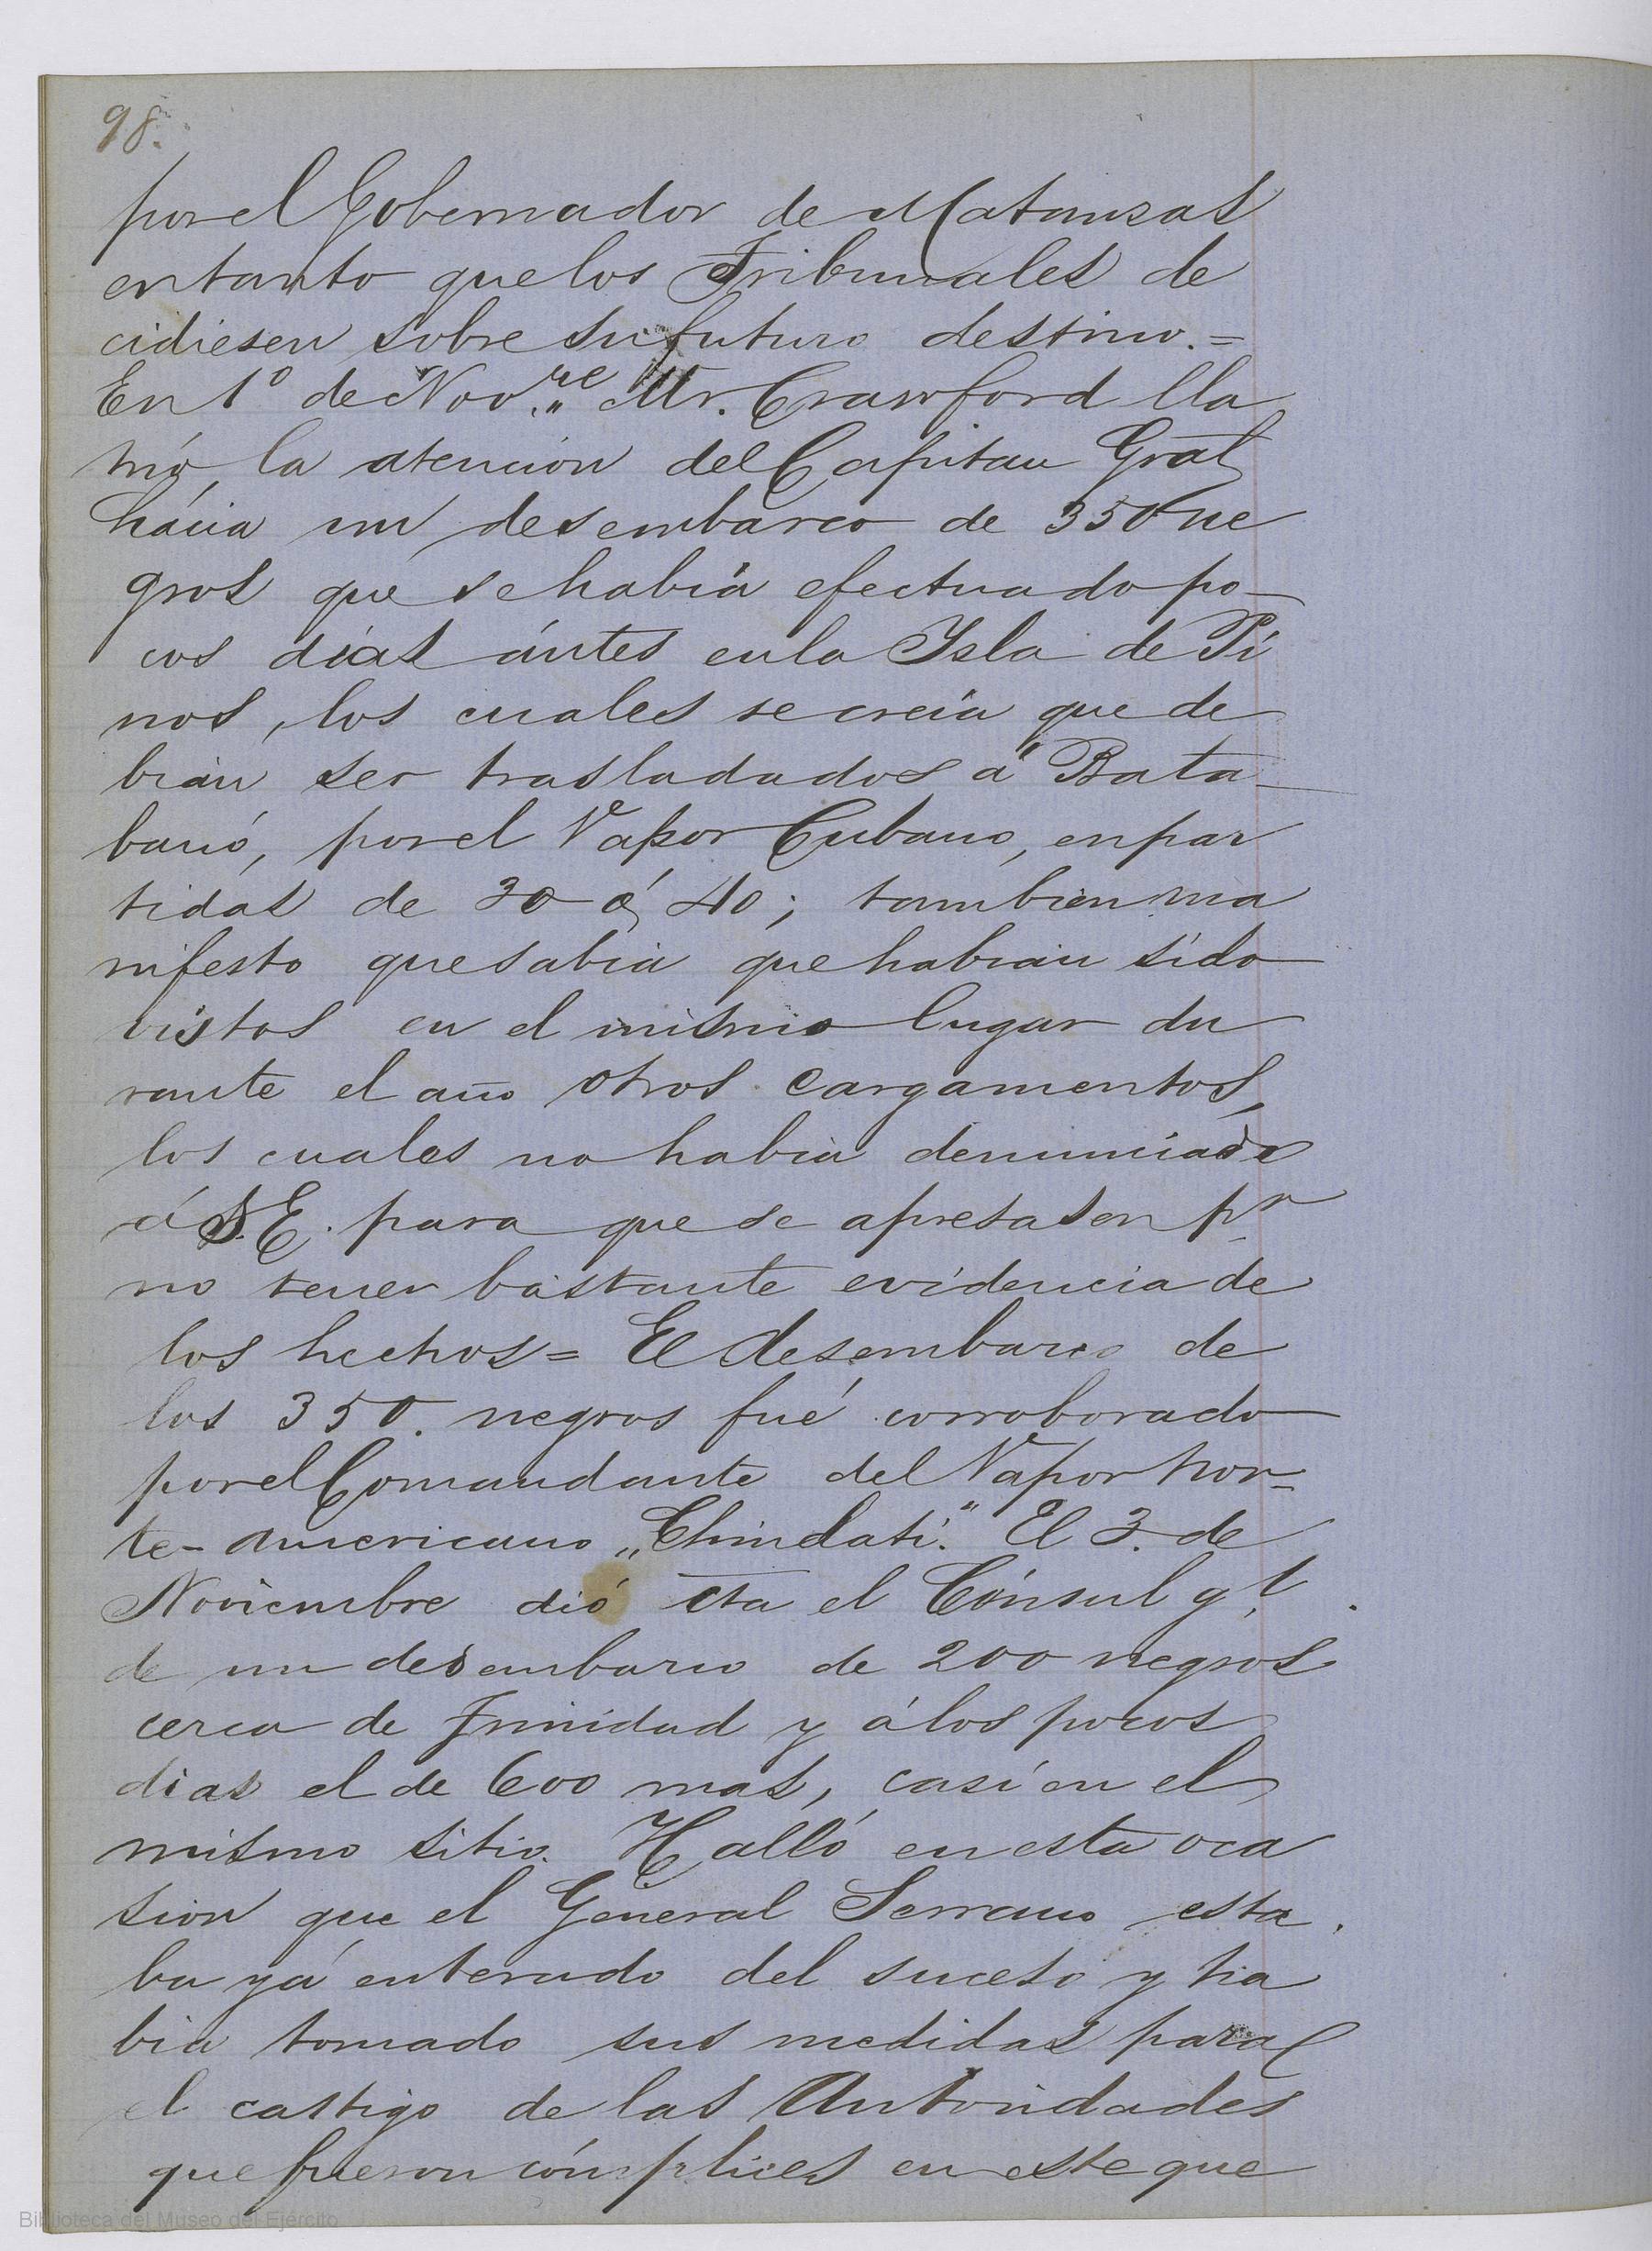 98.
por el Gobernador de Matanzas
en tanto que los Tribunales de
cidiesen sobre su futuro destino.=
En 1º de Nov.re Mr. Crawford lla
mó, la atención del Capitan Gral
hácia un desembarco de 350 ne
gros que se habia efectuado po-
cos dias ántes en la Ysla de Pi
nos, los cuales se creia que de
bian ser trasladados á Bata-
banó, por el Vapor Cubano, en par
tidas de 30 ó 40; tambien ma
nifesto que sabia que habian sido
vistos en el mismo lugar du
rante el año otros cargamentos,
los cuales no habia denunciado
á S.E. para que se apresasen pr
no tener bastante evidencia de
los hechos= El desembarco de
los 350. negros fué corroborado
por el Comandante del Vapor nor=
te-americano „Chindati." El 3. de
Noviembre dió cta el Cónsul g.l
de un desembarco de 200 negros
cerca de Trinidad y á los pocos
dias el de 600 mas, casi en el
mismo sitio. Halló en esta oca
sion que el General Serrano esta
ba yá enterado del suceso y ha
bia tomado sus medidas para
el castigo de las Autoridades
que fueron cómplices en este que
Biblioteca del Museo del Ejército